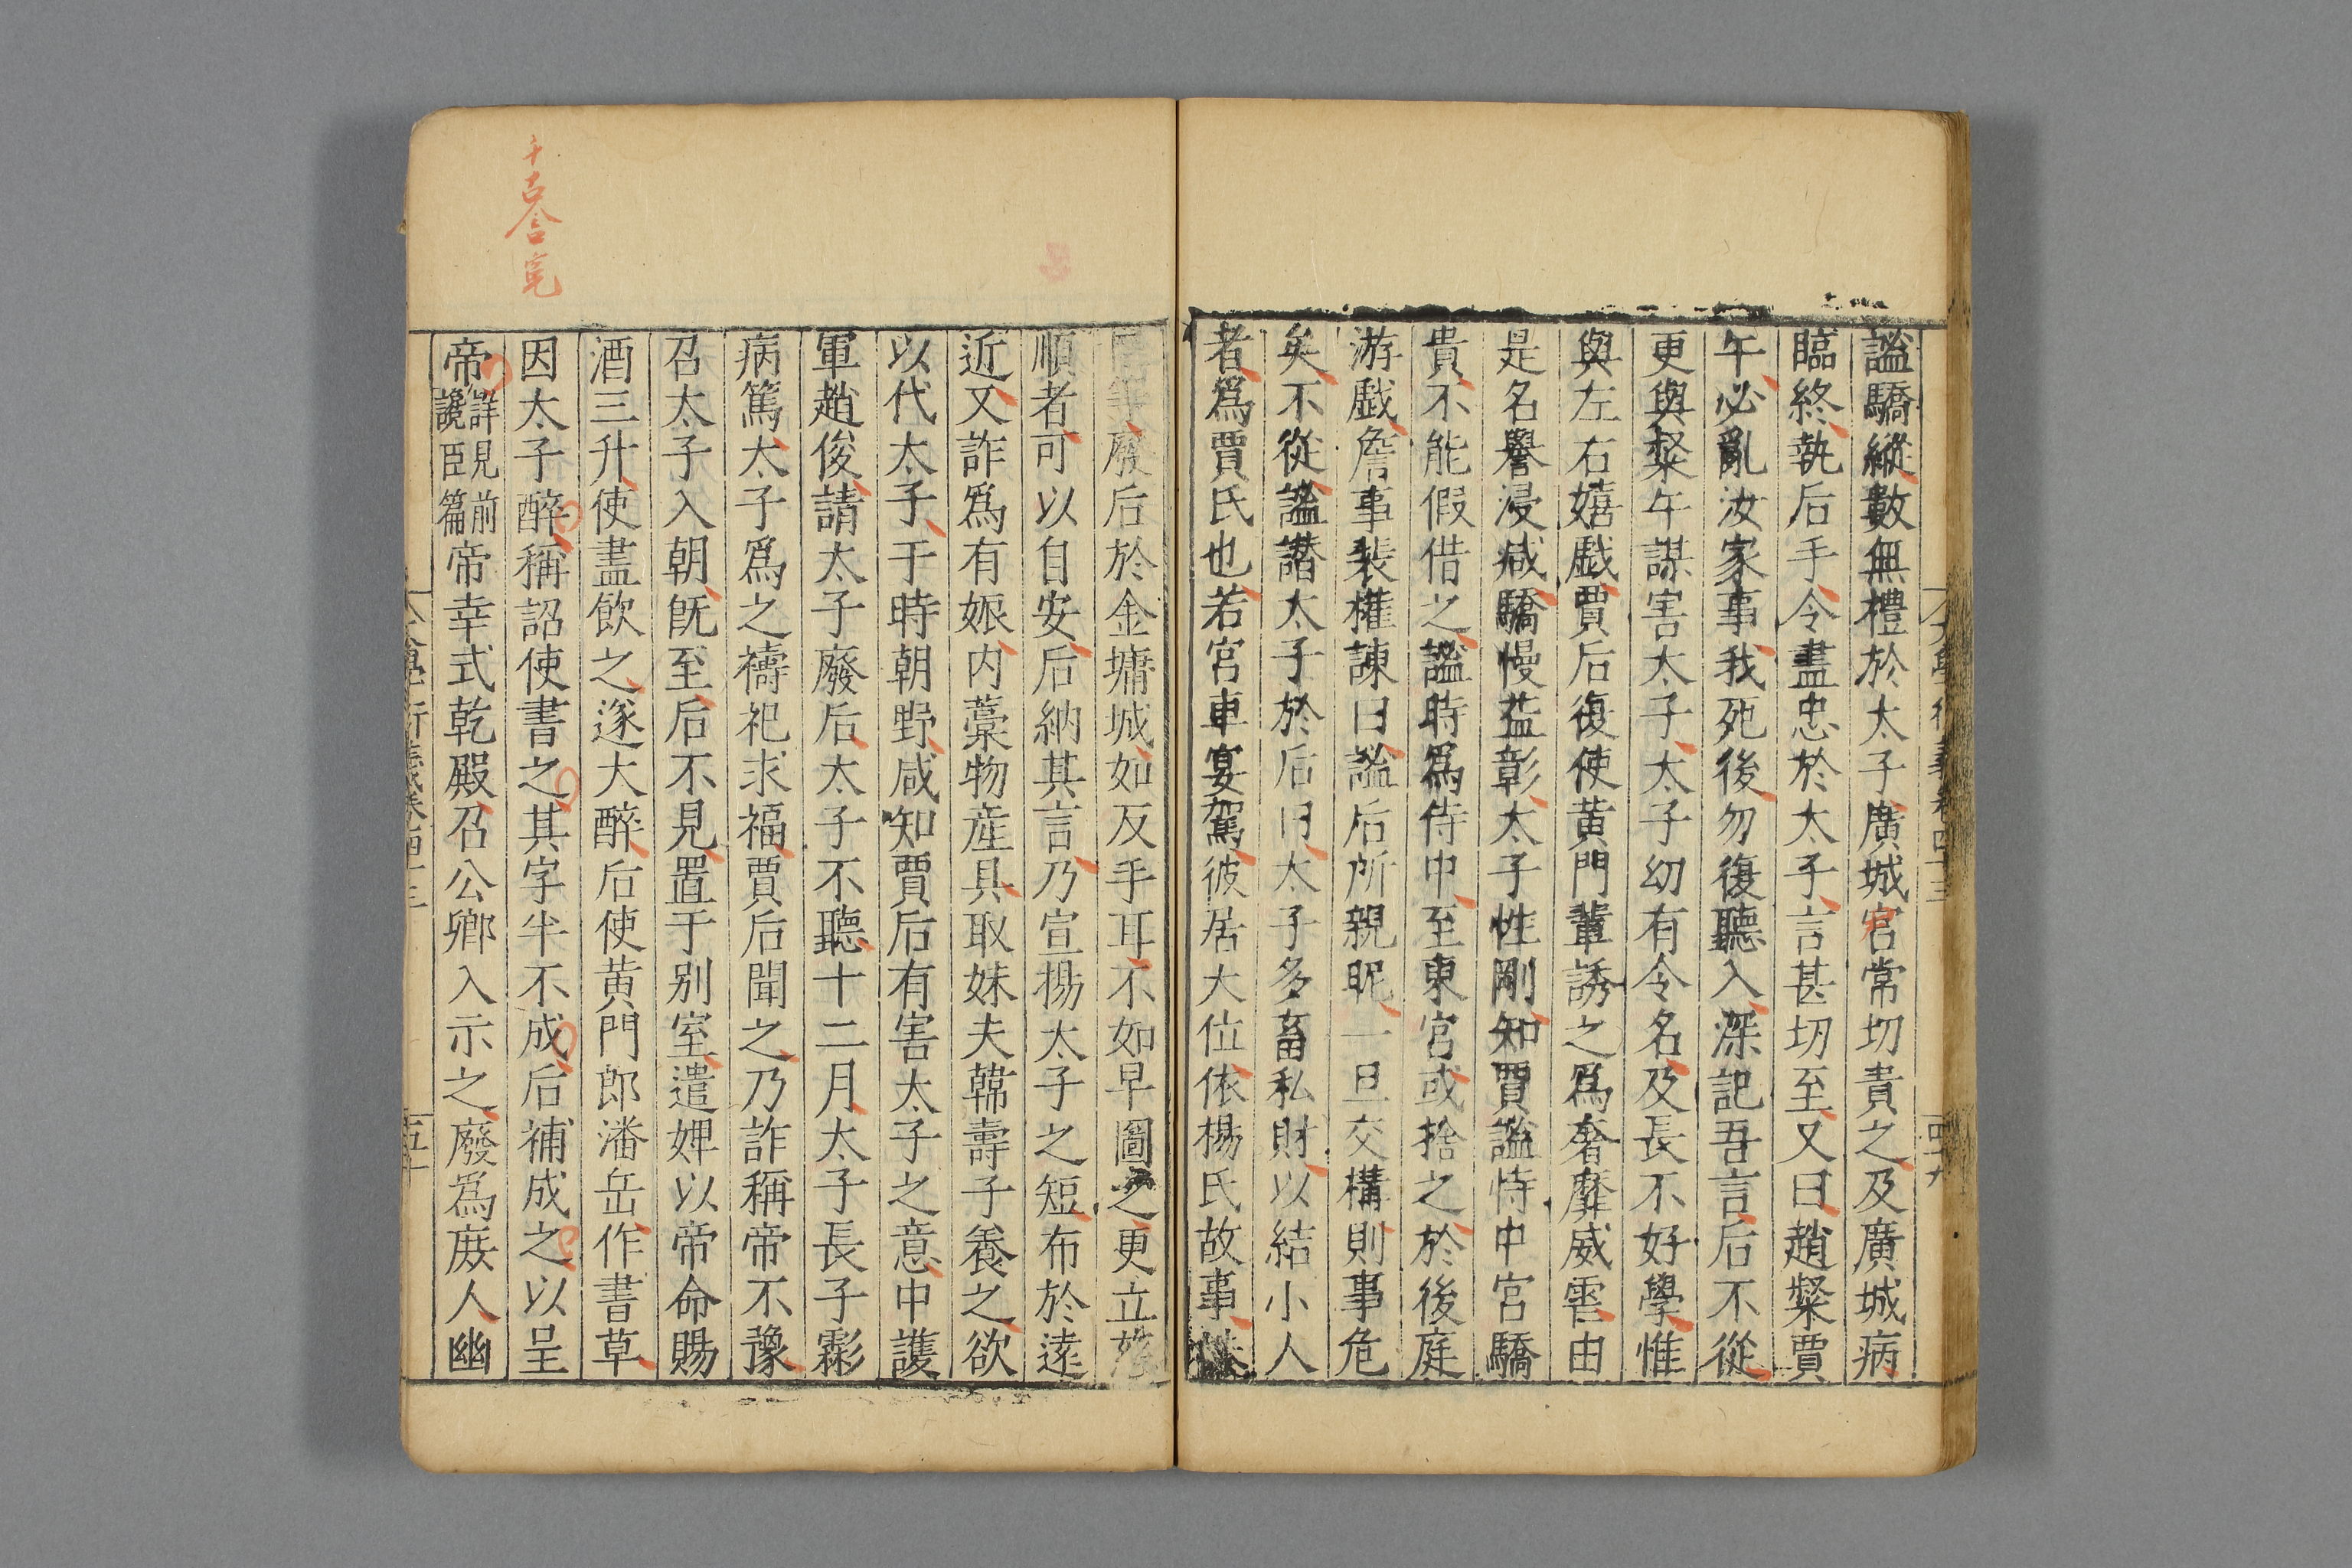 謐驕縱數無禮於太子廣城宮常切責之及廣城病
臨終執后手令盡忠於太子言甚切至又曰趙粲賈
午必亂汝家事我死後勿復聽入深記吾言后不從
更與粲午謀害太子太子幼有令名及長不好學惟
與左右嬉戲賈后復使黃門輩誘之爲奢靡威虐由
是名譽浸減驕慢益彰太子性剛知賈謐恃中宮驕
貴不能假借之謐時爲侍中至東宮或捨之於後庭
游戲詹事裴權諫曰謐后所親昵一旦交構則事危
矣不從謐譖太子於后曰太子多畜私財以結小人
者爲賈氏也若宮車宴駕彼居大位依楊氏故事誅
廢后於金墉城如反手耳不如早圖之更立慈
順者可以自安后納其言乃宣揚太子之短布於遠
近又詐爲有娠内藁物産具取妹夫韓壽子養之欲
以代太子于時朝野咸知賈后有害太子之意中護
軍趙俊請太子廢后太子不聽十二月太子長子霦
病篤太子爲之禱祀求福賈后聞之乃詐稱帝不豫
召太子入朝既至后不見置于别室遣婢以帝命賜
酒三升使盡飲之遂大醉后使黃門郎潘岳作書草
因太子醉稱詔使書之其字半不成后補成之以呈
帝詳見前讒臣篇帝幸式乾殿召公卿入示之廢爲庻人幽
大學衍義卷四十三
四十九
大學衍義卷四十三
五十
千古含寃